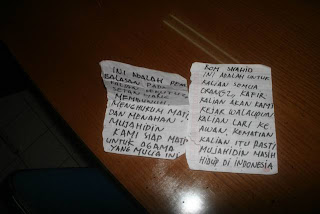 INI ADALAH PEM
BALASAN PADA
KALIAN
SETAN YANG
MEMBUNUH,
MENGHUKUM MATI
DAN MENAHAN
MUJAHIDIN
KAMI SIAP MATI
UNTUK AGAMA
YANG MULIA INI
BOM SYAHID
INI ADALAH UNTUK
KALIAN SEMUA
ORANG2 KAFIR
KALIAN AKAN KAMI
KEJAR WALAUPUN
KALIAN LARI KE
AWAN, KEMATIAN
KALIAN ITU PASTI
MUJAHIDIN MASIH
HIDUP DI INDONESIA